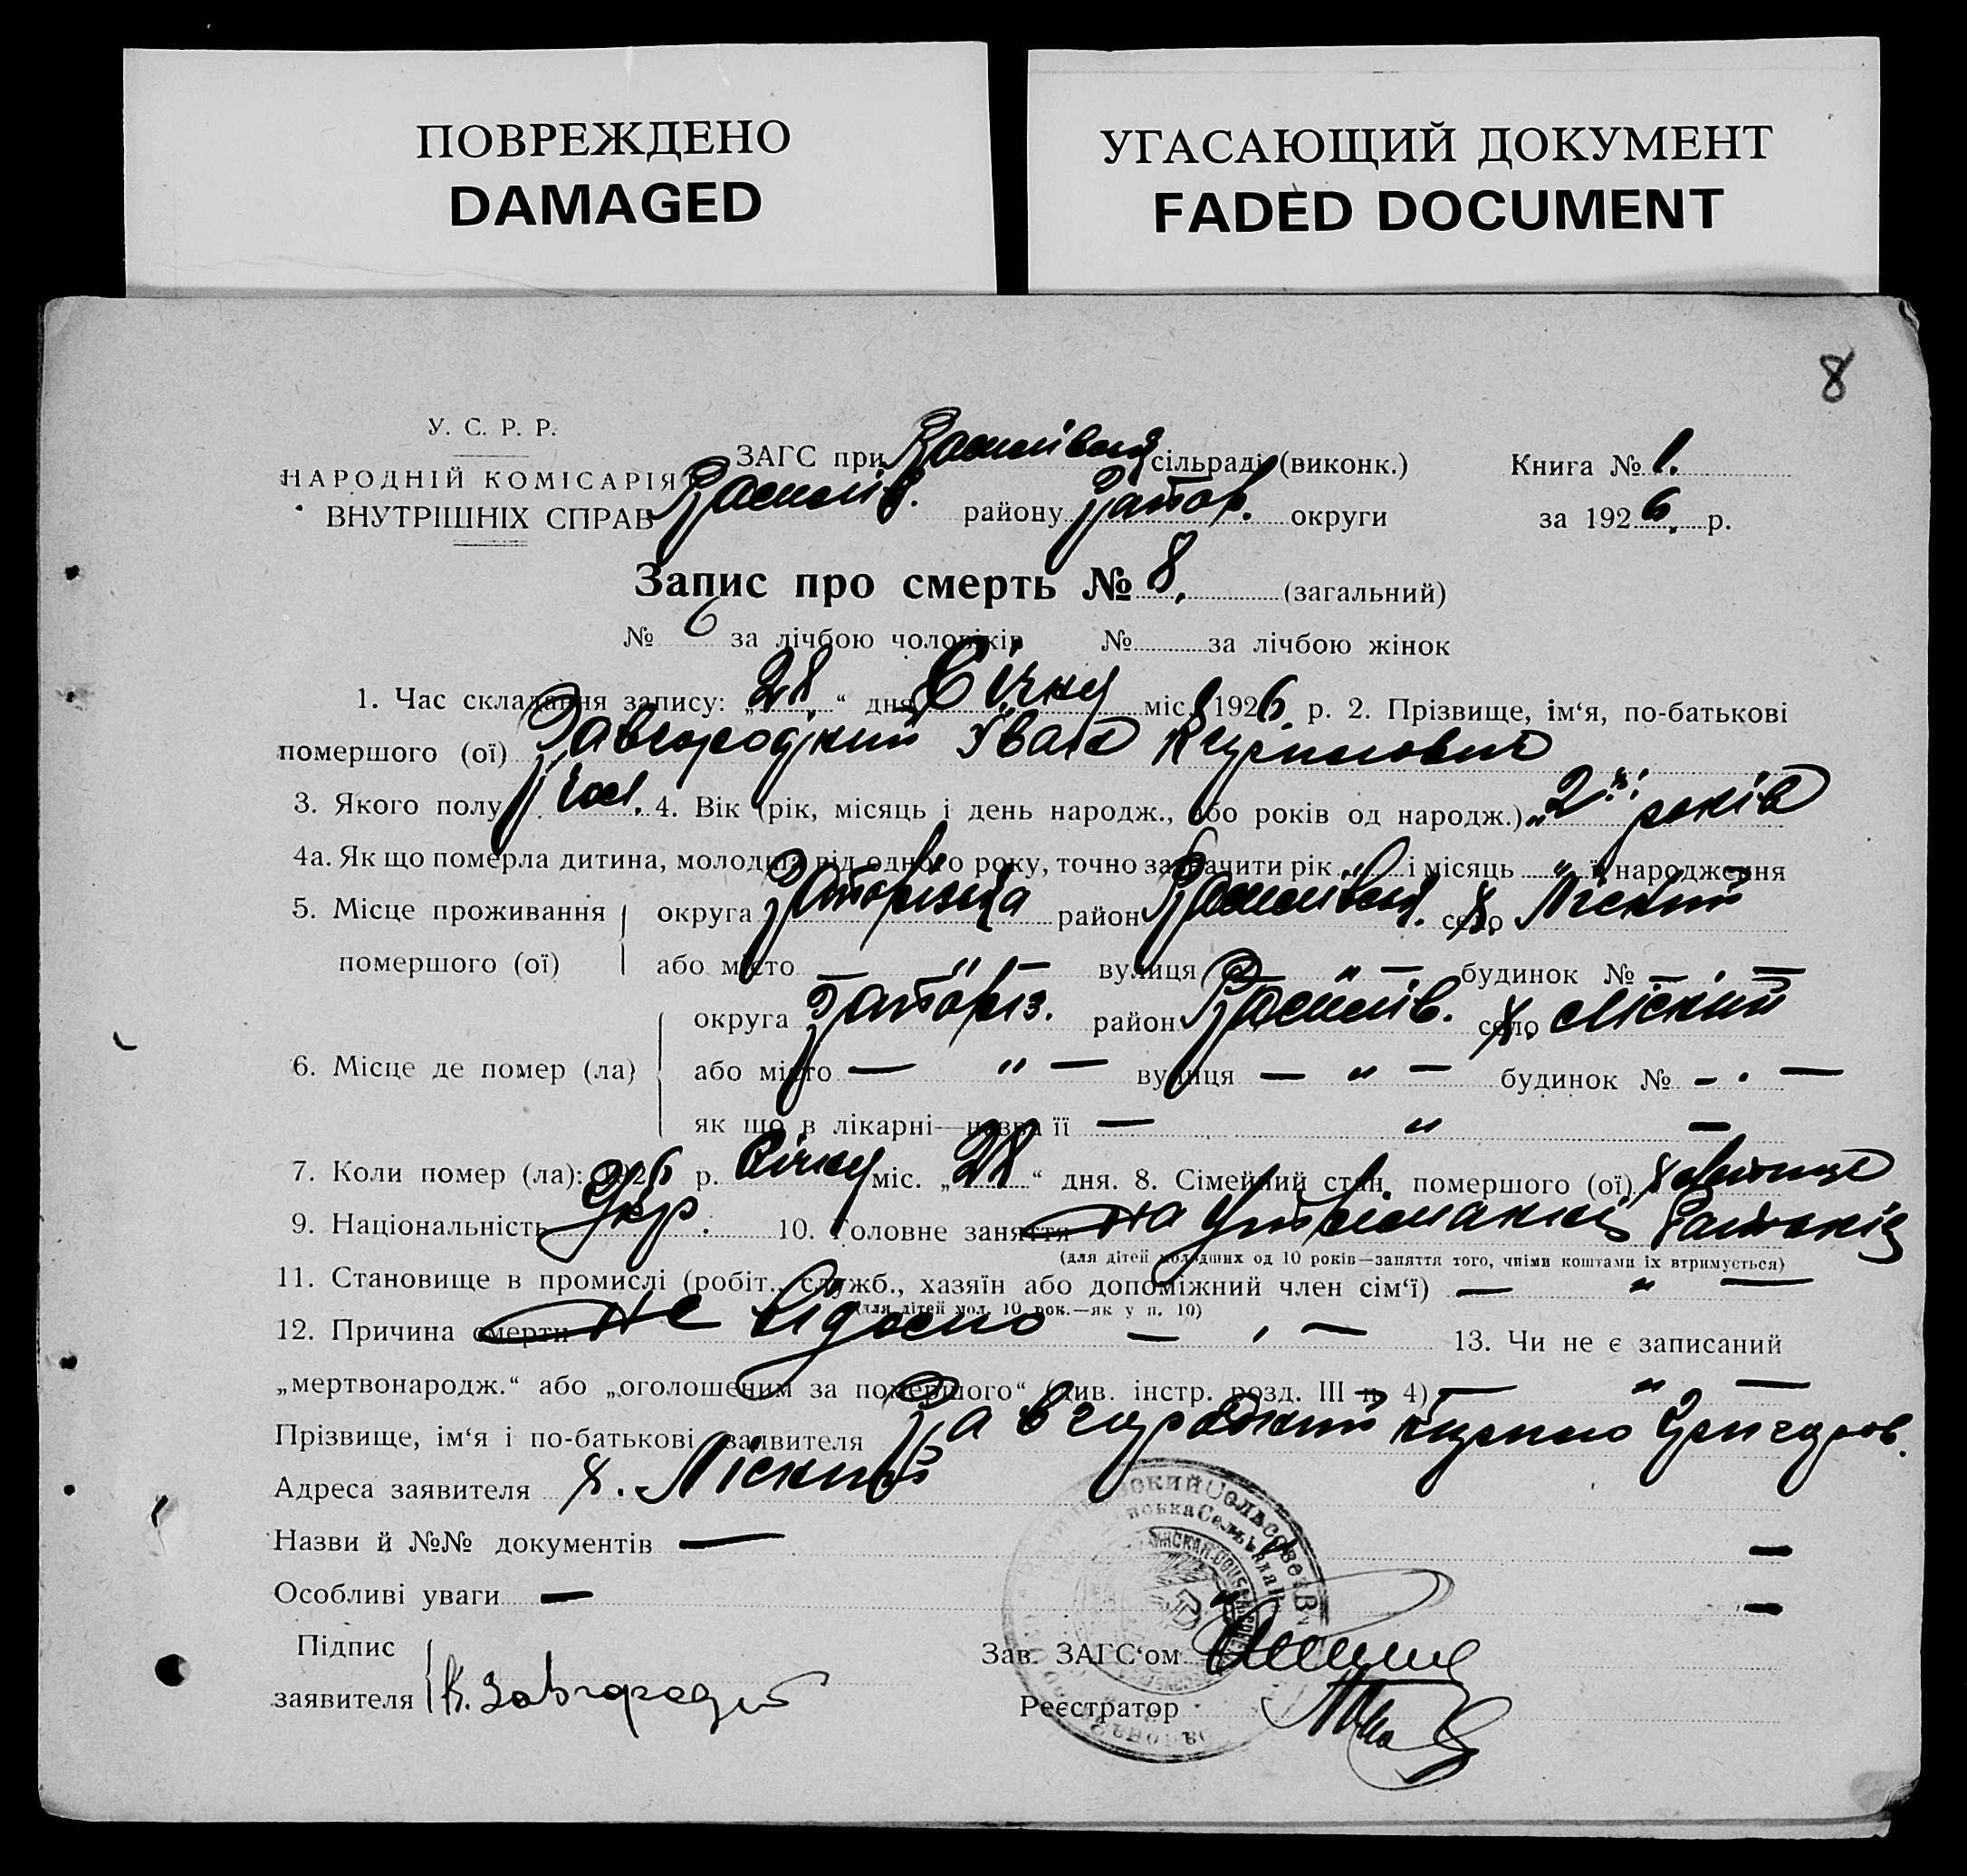 ПОВРЕЖДЕНО
DAMAGED
УГАСАЮЩИЙ ДОКУМЕНТ
FADED DOCUMENT
8
У. С. Р. Р.
НАРОДНІЙ КОМІСАРІЯ
ВНУТРІШНІХ СПРАВ
ЗАГС при Василівськ сільраді (виконк.) Книга № 1.
Василів. району Запор. округи за 1926. р.
Запис про смерть № 8. (загальний)
№ 6 за лічбою чоловіків № за лічбою жінок
1. Час складання запису: „28„“ дня Січня міс. 1926. р. 2. Прізвище, ім‘я, по-батькові
помершого (ої) Завгородний Іван Кирилович
3. Якого полу чол. 4. Вік (рік, місяць і день народж., або років од народж.) „2“ років
4а. Як що померла дитина, молодша від одного року, точно зазначити рік „ і місяць „ її народження
5. Місце проживання округа Запорізька район Василівськ. село х. Лісний
помершого (ої) або місто — „ — вулиця — „ — будинок № — „ —
округа Запоріз. район Василів. село х. Лісний
6. Місце де помер (ла) або місто — „ — вулиця — „ — будинок № — „ —
як що в лікарні—назва її — „ —
7. Коли помер (ла): 1926 р. Січня міс. „28“ дня. 8. Сімейний стан помершого (ої)
9. Національність Укр. 10. Головне заняття На утриманні батьків
(для дітей молодших од 10 років—заняття того, чиїми коштами їх втримується)
11. Становище в промислі (робіт., служб., хазяїн або допоміжний член сім‘ї) — „ —
(для дітей мол. 10 рок.—як у п. 10)
12. Причина смерти Не відомо — „ — 13. Чи не є записаний
„мертвонародж.“ або „оголошеним за померлого“ (див. інстр. розд. III п. 4) — „ —
Прізвище, ім‘я і по-батькові заявителя Завгородний Кирило Григоров.
Адреса заявителя х. Лісний
Назви й №№ документів — —
Особливі уваги — „ —
Підпис
заявителя К. Завгородий
Зав. ЗАГС‘ом
Реєстратор